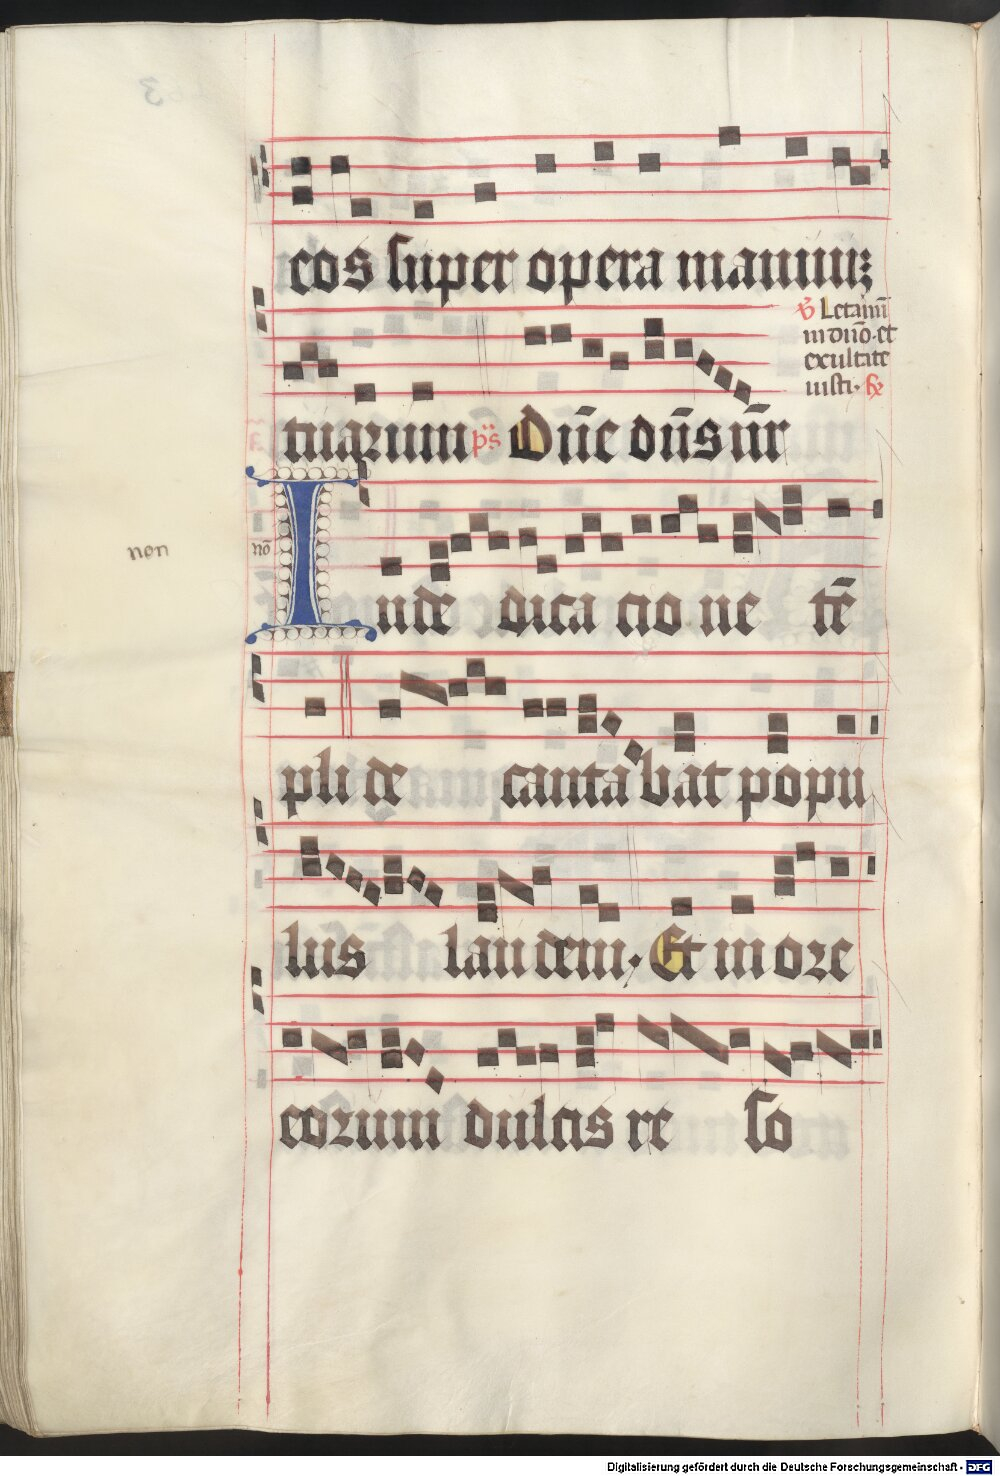 eos super opera manuu&#42863;
℣ Letamī
in dn̄o · et
exultate
iusti · ℟
tuarum ps̄ Dn̄e dn̄s nr̄
non
nō
In de dica cio ne tē
pli de canta bat popu
lus lau dem · Et in ore
eorum dulcis re so
Digitalisierung gefördert durch die Deutsche Forschungsgemeinschaft - DFG